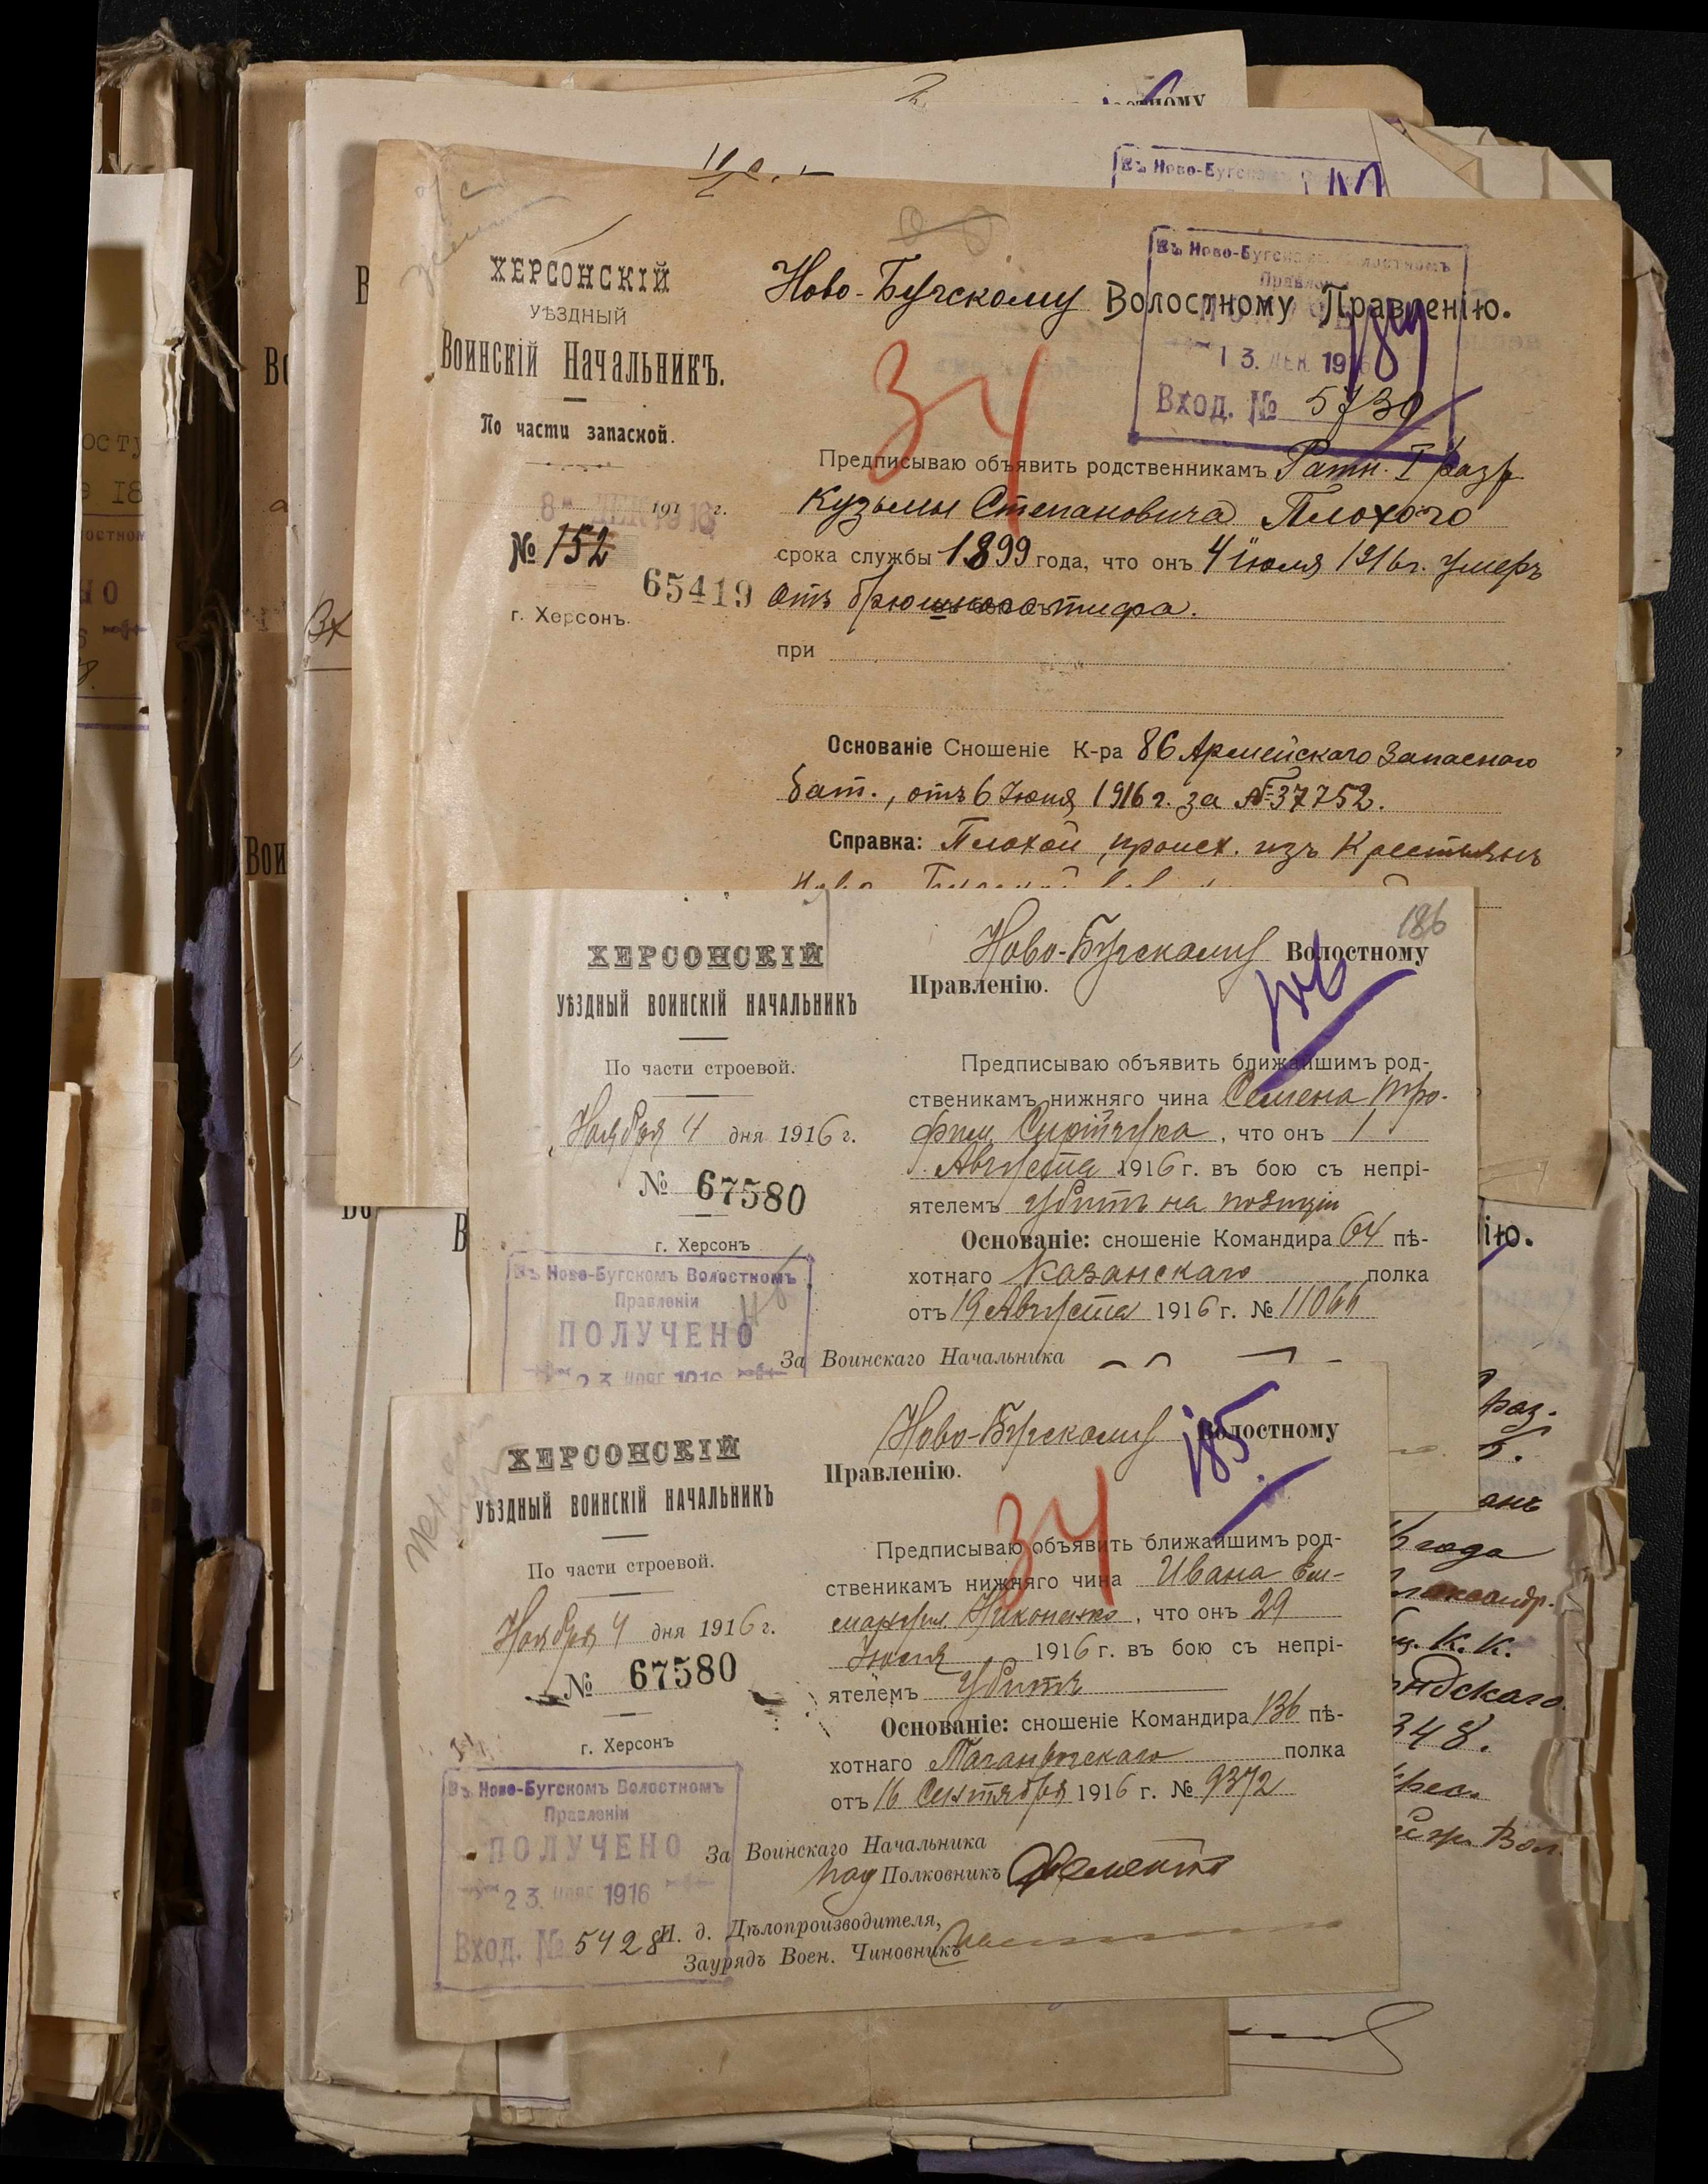 Въ Ново-Бугском
ХЕРСОНСКІЙ
УѢЗДНЫЙ
Воинскій Начальникъ.
По части запасной.
8 - ДЕК 1916
191 г.
№ 152
65419
г. Херсонъ.
Ново-Бугскому Волостному Правленію.
Въ Ново-Бугскомъ Волостномъ
Правленіи
13. ДЕК 1916
Вход. № 5739
187
34
Предписываю объявить родственникамъ Ратн. I разр.
Кузьмы Степановича Плохого
срока службы 1899 года, что онъ 4 Июля 1916 г. умеръ
отъ брюшного тифа.
при
Основаніе Сношеніе К-ра 86 Армейскаго Запаснаго
бат., отъ 6 Июня 1916 г. за № 37752.
Справка: Плохой, происх. изъ Крестьянъ
186
ХЕРСОНСКІЙ
УѢЗДНЫЙ ВОИНСКІЙ НАЧАЛЬНИКЪ
По части строевой.
Ноября 4 дня 1916 г.
№ 67580
г. Херсонъ
Въ Ново-Бугскомъ Волостномъ
Правленіи
ПОЛУЧЕНО
23 НОЯБ 1916
Ново-Бугскому Волостному
Правленію.
186
Предписываю объявить ближайшимъ род-
ственикамъ нижняго чина Семена Тро-
фим. , что онъ 1
Августа 1916 г. въ бою съ непрі-
ятелемъ убитъ на позиціи
Основаніе: сношеніе Командира 64 пѣ-
хотнаго Казанскаго полка
отъ 19 Августа 1916 г. № 11066
За Воинскаго Начальника
ХЕРСОНСКІЙ
УѢЗДНЫЙ ВОИНСКІЙ НАЧАЛЬНИКЪ
По части строевой.
Ноября 4 дня 1916 г.
№ 67580
г. Херсонъ
Въ Ново-Бугскомъ Волостномъ
Правленіи
ПОЛУЧЕНО
23 НОЯБ 1916
Вход. № 5428
Ново-Бугскому Волостному
Правленію.
185
34
Предписываю объявить ближайшимъ род-
ственикамъ нижняго чина Ивана
Никоненко, что онъ 29
Июля 1916 г. въ бою съ непрі-
ятелемъ убитъ
Основаніе: сношеніе Командира 136 пѣ-
хотнаго Таганрогскаго полка
отъ 16 Сентября 1916 г. № 9372
За Воинскаго Начальника
Под Полковникъ
И. д. Дѣлопроизводителя,
Заурядъ Воен. Чиновникъ
ію.
раз.
года
К. К.
348.
Вол.